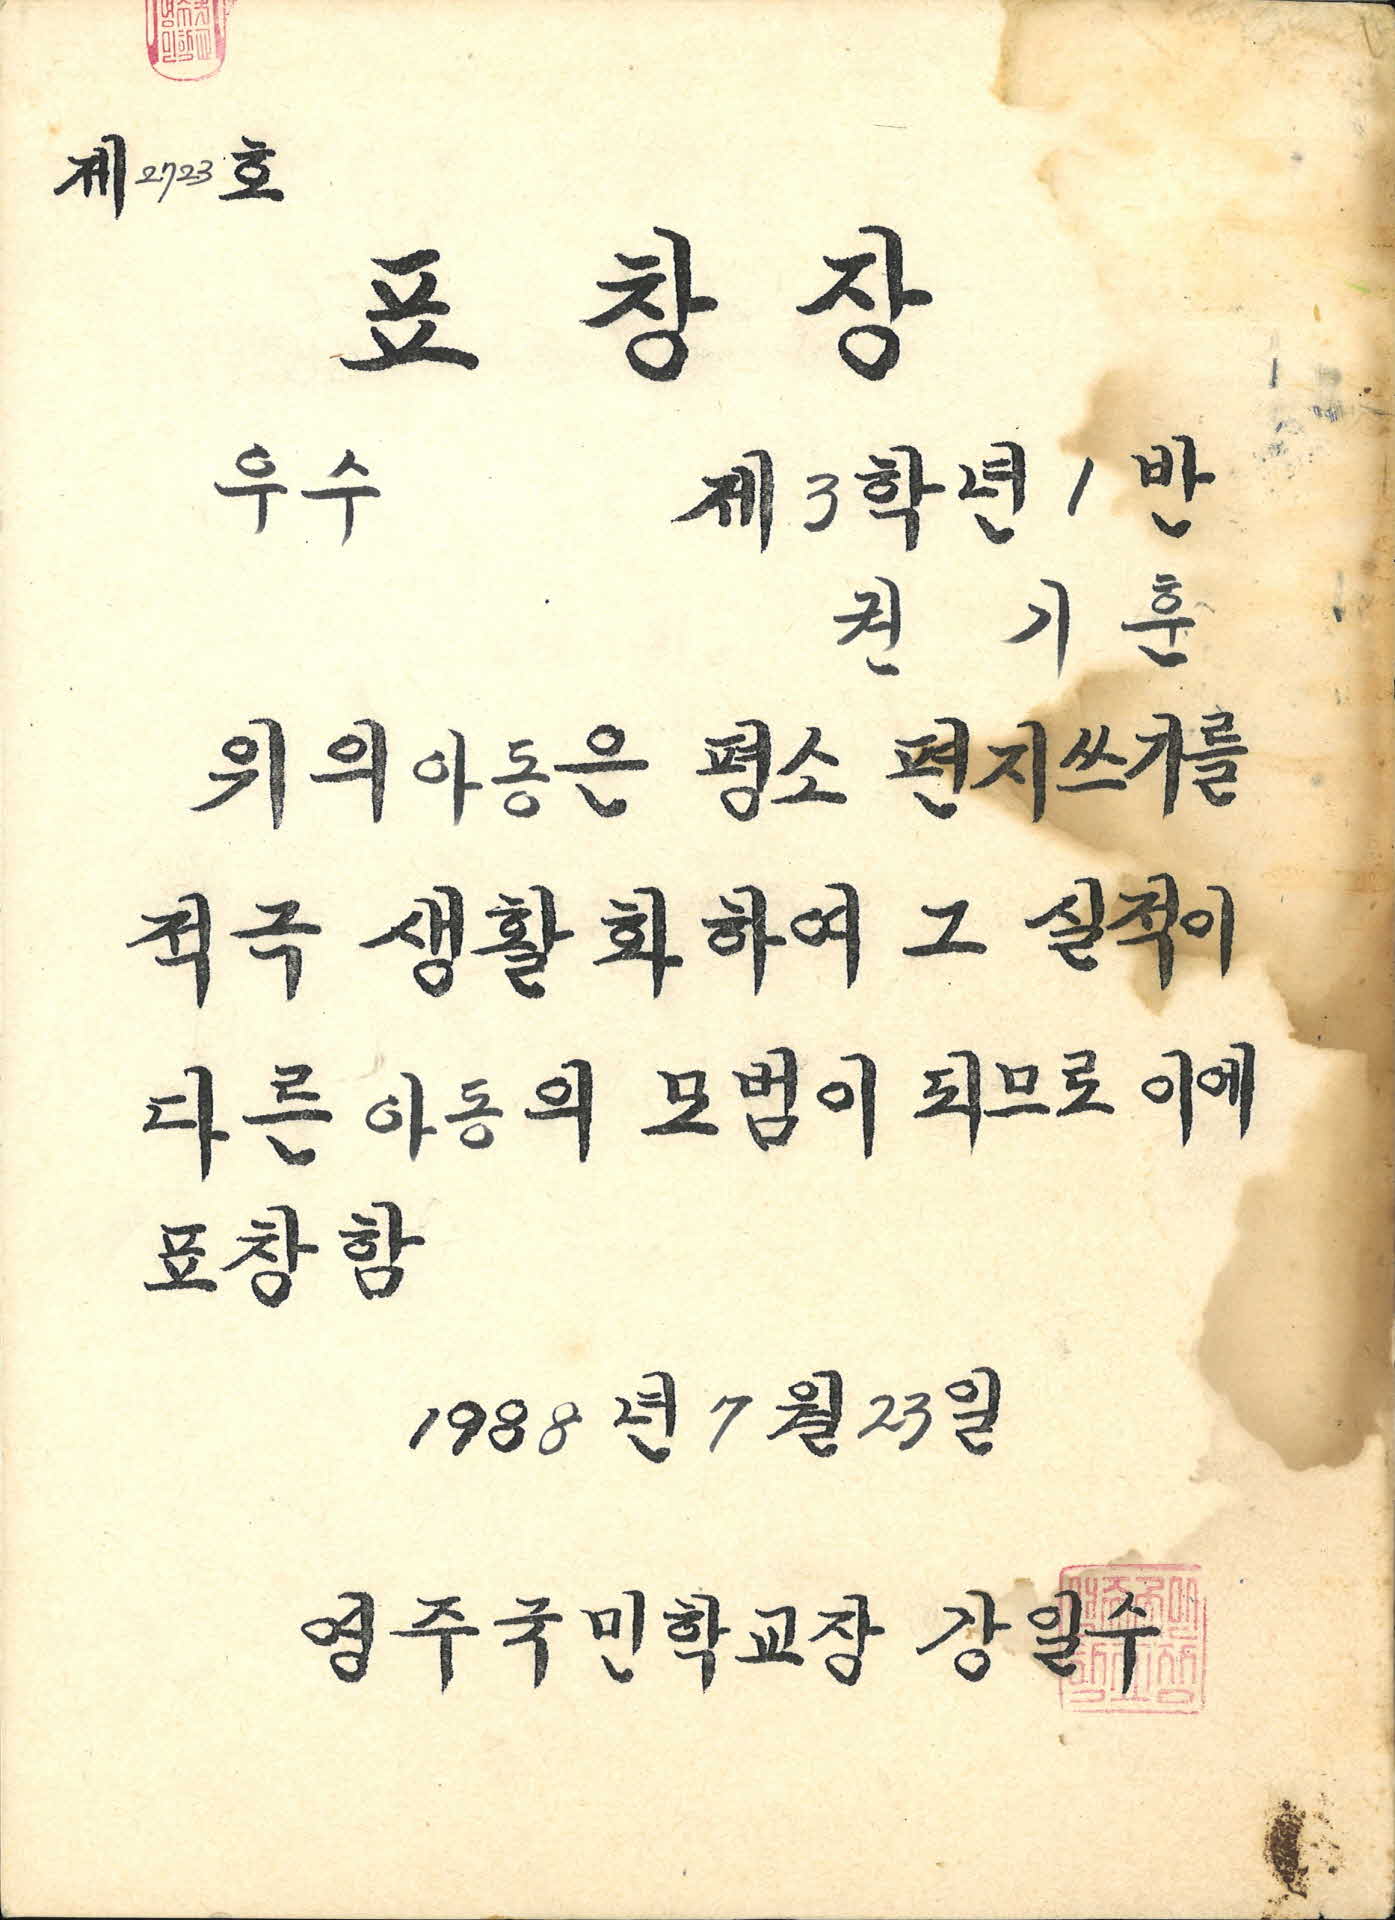 제2723호
표창장
우수 제3학년 1반
권기훈
위의 아동은 평소 편지쓰기를
적극 생활화하여 그 실적이
다른 아동의 모범이 되므로 이에
표창함
1988년 7월 23일
영주국민학교장 강일수